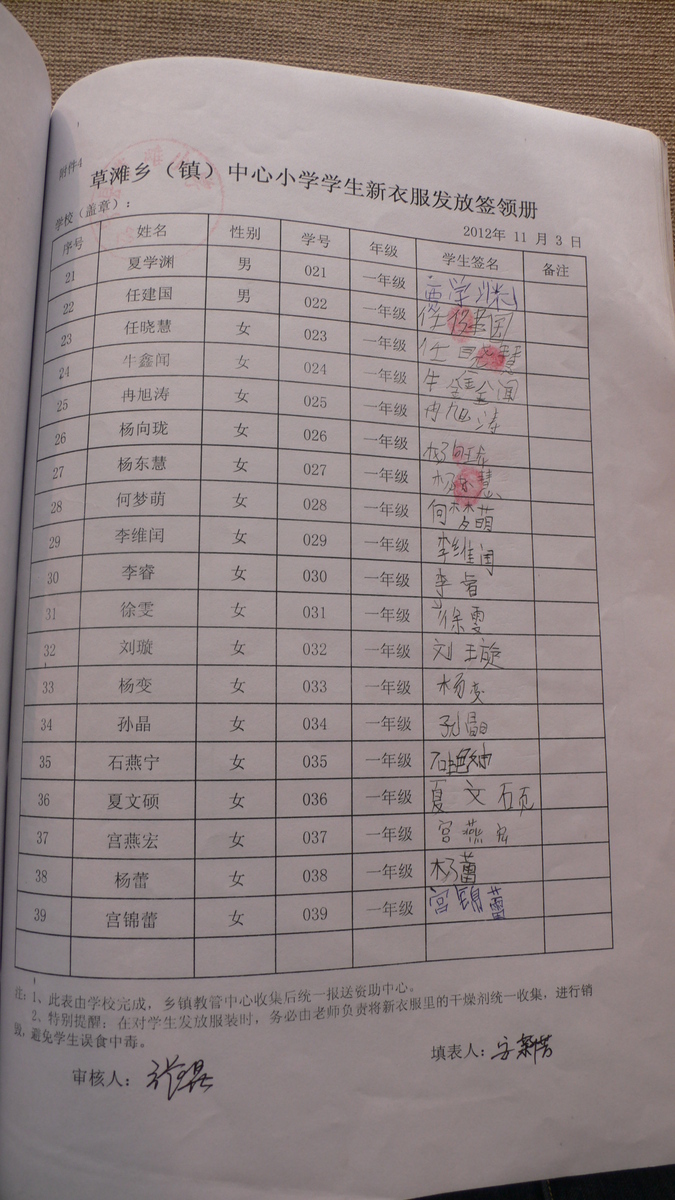 附件4
草滩乡（镇）中心小学学生新衣服发放签领册
学校（盖章）： 2012年 11 月 3 日
序号 姓名 性别 学号 年级 学生签名 备注
21 夏学渊 男 021 一年级 夏学渊
22 任建国 男 022 一年级 任建国
23 任晓慧 女 023 一年级 任晓慧
24 牛鑫闻 女 024 一年级 牛鑫闻
25 冉旭涛 女 025 一年级 冉旭涛
26 杨向珑 女 026 一年级 杨向珑
27 杨东慧 女 027 一年级 杨东慧
28 何梦萌 女 028 一年级 何梦萌
29 李维闰 女 029 一年级 李维闰
30 李睿 女 030 一年级 李
31 徐雯 女 031 一年级 徐雯
32 刘璇 女 032 一年级 刘璇
33 杨变 女 033 一年级 杨变
34 孙晶 女 034 一年级 孙晶
35 石燕宁 女 035 一年级 石
36 夏文硕 女 036 一年级 夏文硕
37 宫燕宏 女 037 一年级 宫燕宏
38 杨蕾 女 038 一年级 杨蕾
39 宫锦蕾 女 039 一年级 宫锦蕾
注：1、此表由学校完成，乡镇教管中心收集后统一报送资助中心。
2、特别提醒：在对学生发放服装时，务必由老师负责将新衣服里的干燥剂统一收集，进行销
毁，避免学生误食中毒。
填表人：
审核人：